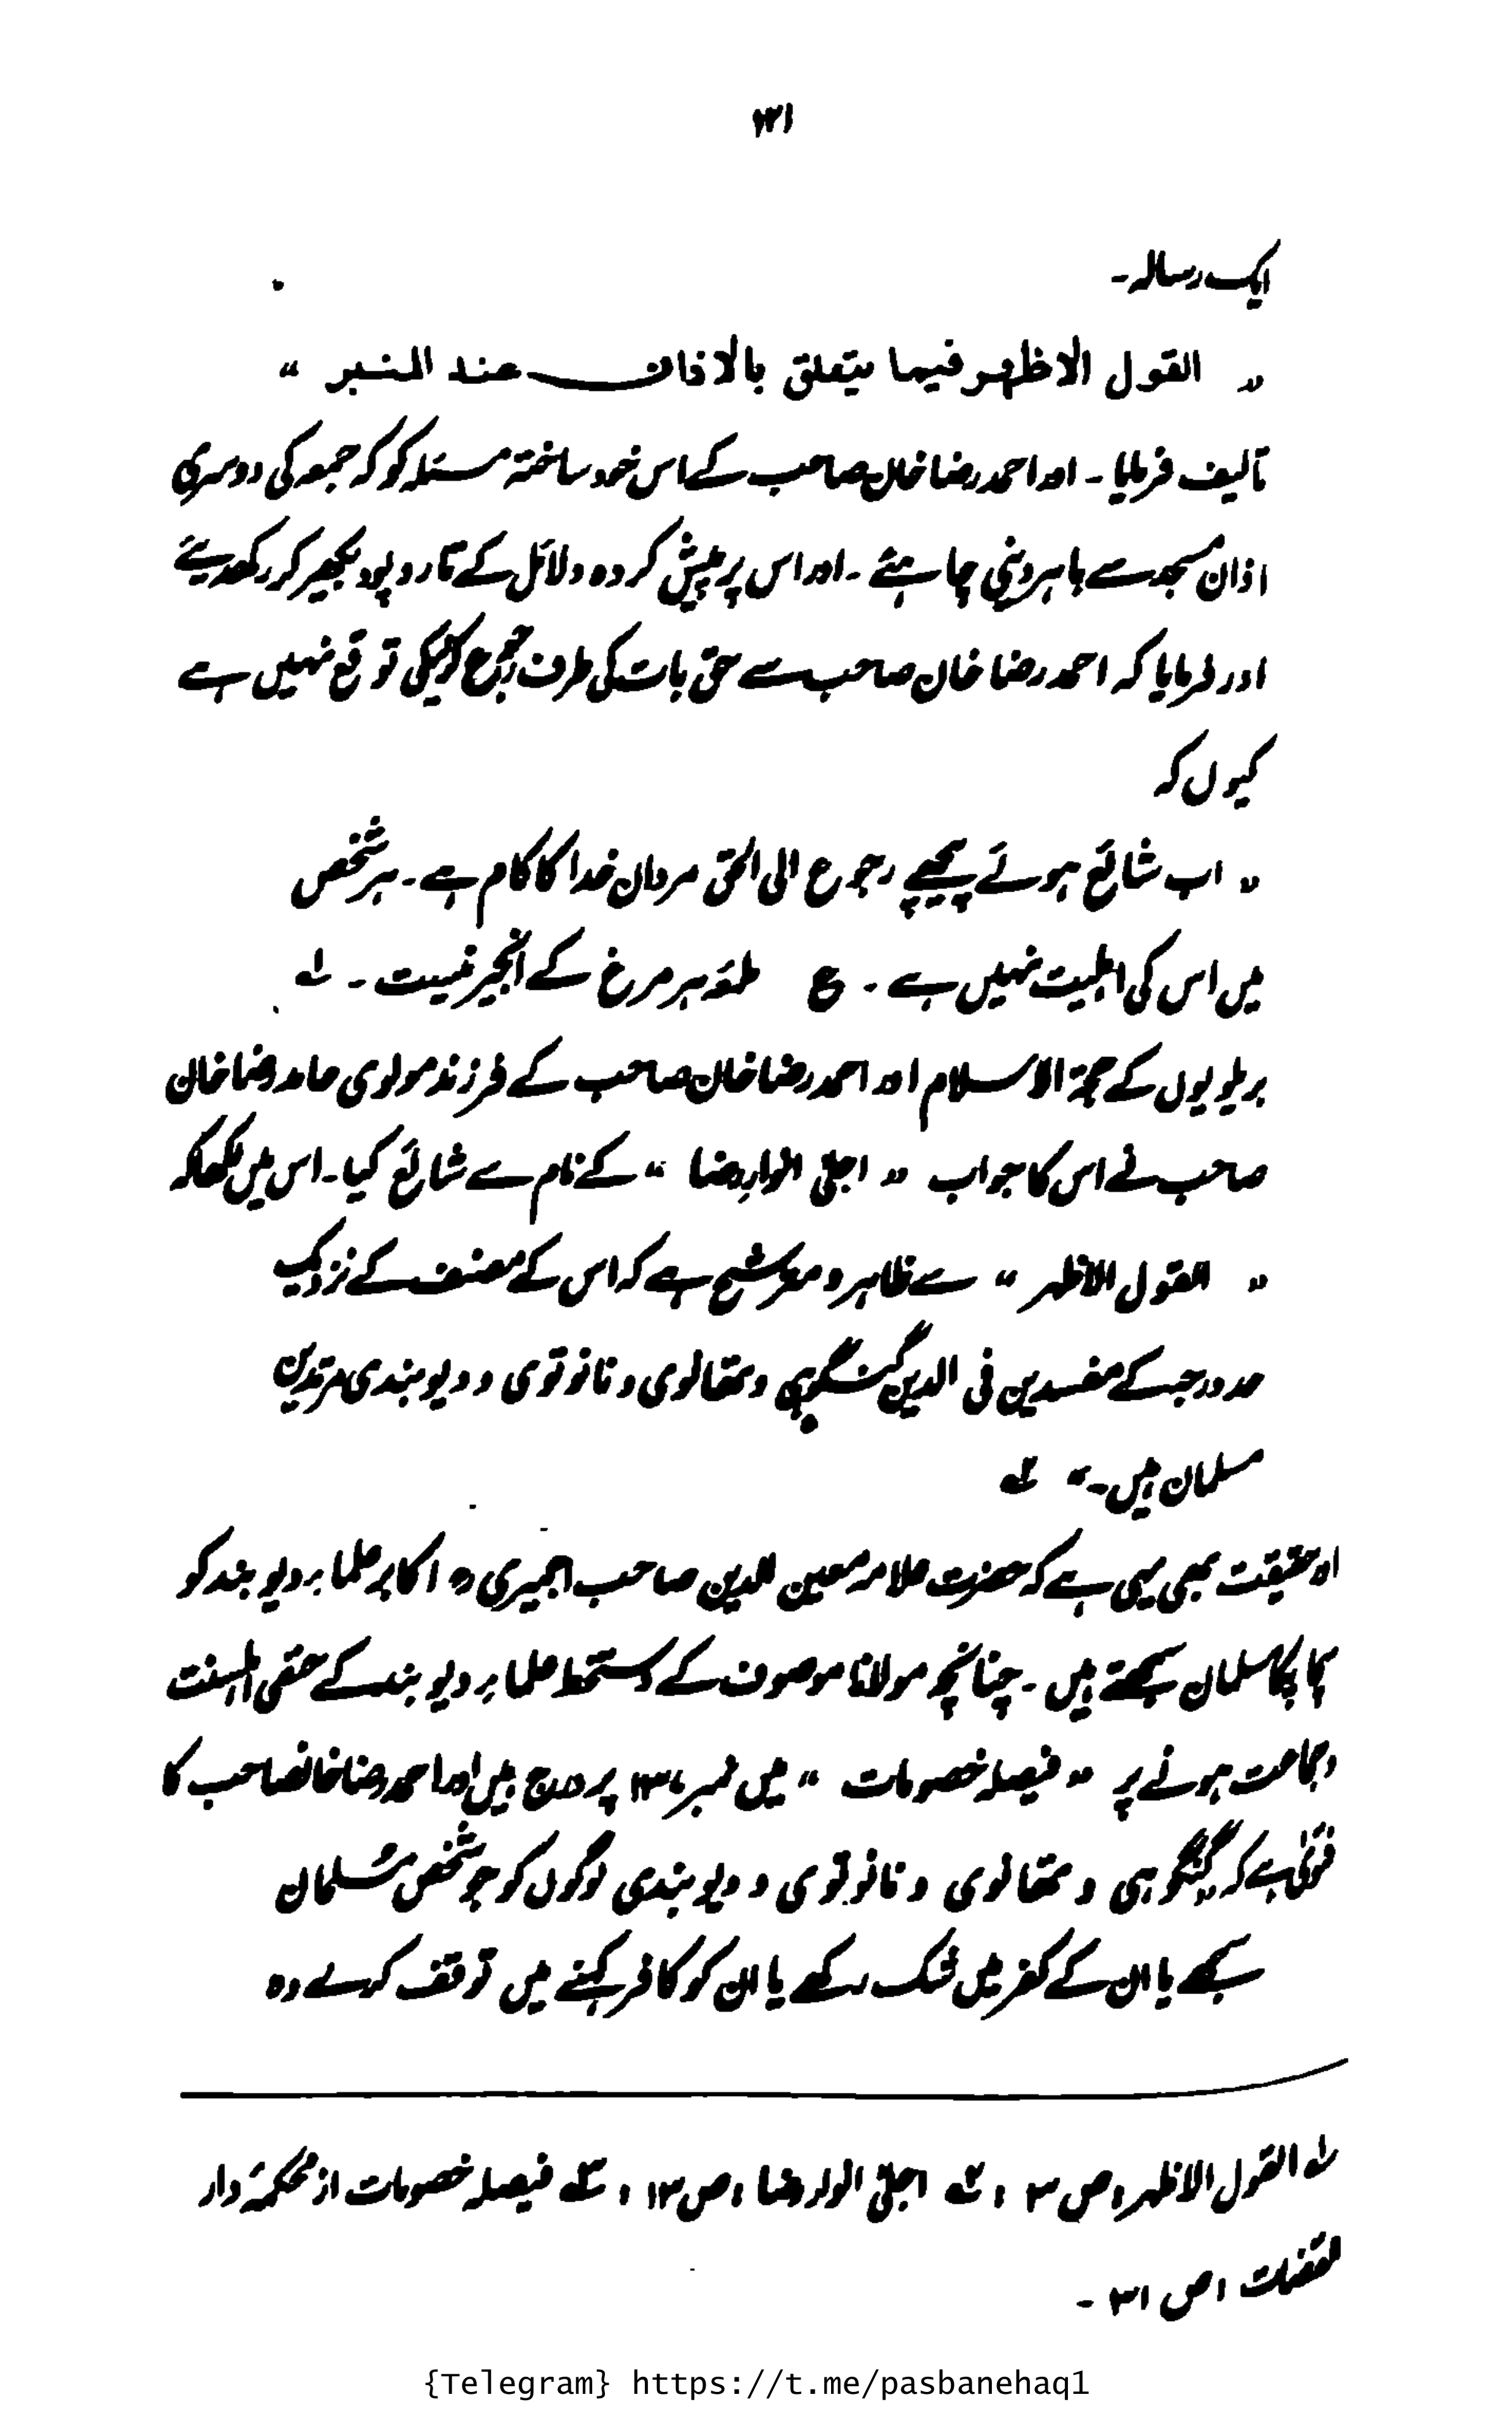 ایک رسالہ۔
" القول الاظہر فیما یتعلق بالاذان عند المنبر "
تالیف فرمایا۔ اور احمد رضا خاں صاحب کے اس خود ساختہ مسئلہ کو کہ جمعہ کی دوسری
اذان مسجد سے باہر دینی چاہئے۔ اور اس پر پیش کردہ دلائل کے تار و پود بکھیر کر رکھدیئے
اور فرمایا کہ احمد رضا خان صاحب سے حق بات کی طرف رجوع کرنیکی توقع نہیں ہے
کیوں کہ
" اب شائع ہوئے پیچھے رجوع الی الحق مردان خدا کا کام ہے۔ ہر شخص
میں اس کی اہلیت نہیں ہے۔ ع طمۂ ہر مرغ کے انجیر نیست۔ لہ
بریلویوں کے حجۃ الاسلام اور احمد رضا خاں صاحب کے فرزند مولوی حامد رضا خان
صاحب نے اس کا جواب " اجلی انوار رضا " کے نام سے شائع کیا۔ اس میں لکھا کہ
" القول الاظہر " سے ظاہر و مترشح ہے کہ اس کے مصنف کے نزدیک
حد درجہ کے مفسدین فی الدین گنگوہی و تھانوی و نانوتوی و دیوبندی مرتدین
مسلمان ہیں۔" ٢ہ
اور حقیقت بھی یہی ہے کہ حضرت علامہ معین الدین صاحب اجمیری رح اکابر علماء دیوبند کو
سچا پکا مسلمان سمجھتے ہیں۔ چنانچہ مولانا موصوف کے دستخط علماءِ دیوبند کے حنفی اہلسنت
وجماعت ہونے پر " فیصلہ خصومات " میں نمبر پر درج ہیں اور احمد رضا خانصاحب کا
فتویٰ ہے کہ گنگوہی و تھانوی و نانوتوی و دیوبندی لوگوں کو جو شخص مسلمان
سمجھے یا ان کے کفر میں شک رکھے یا ان کو کافر کہنے میں توقف کرے وہ
لہ القول الاظہر، ص ۳ ، ٢ہ اجلی انوار رضا ، ص ۱۳ ، ٣ہ فیصلہ خصومات از محکمۂ دار
القضات ، ص ۳۱ -
{Telegram} https://t.me/pasbanehaq1